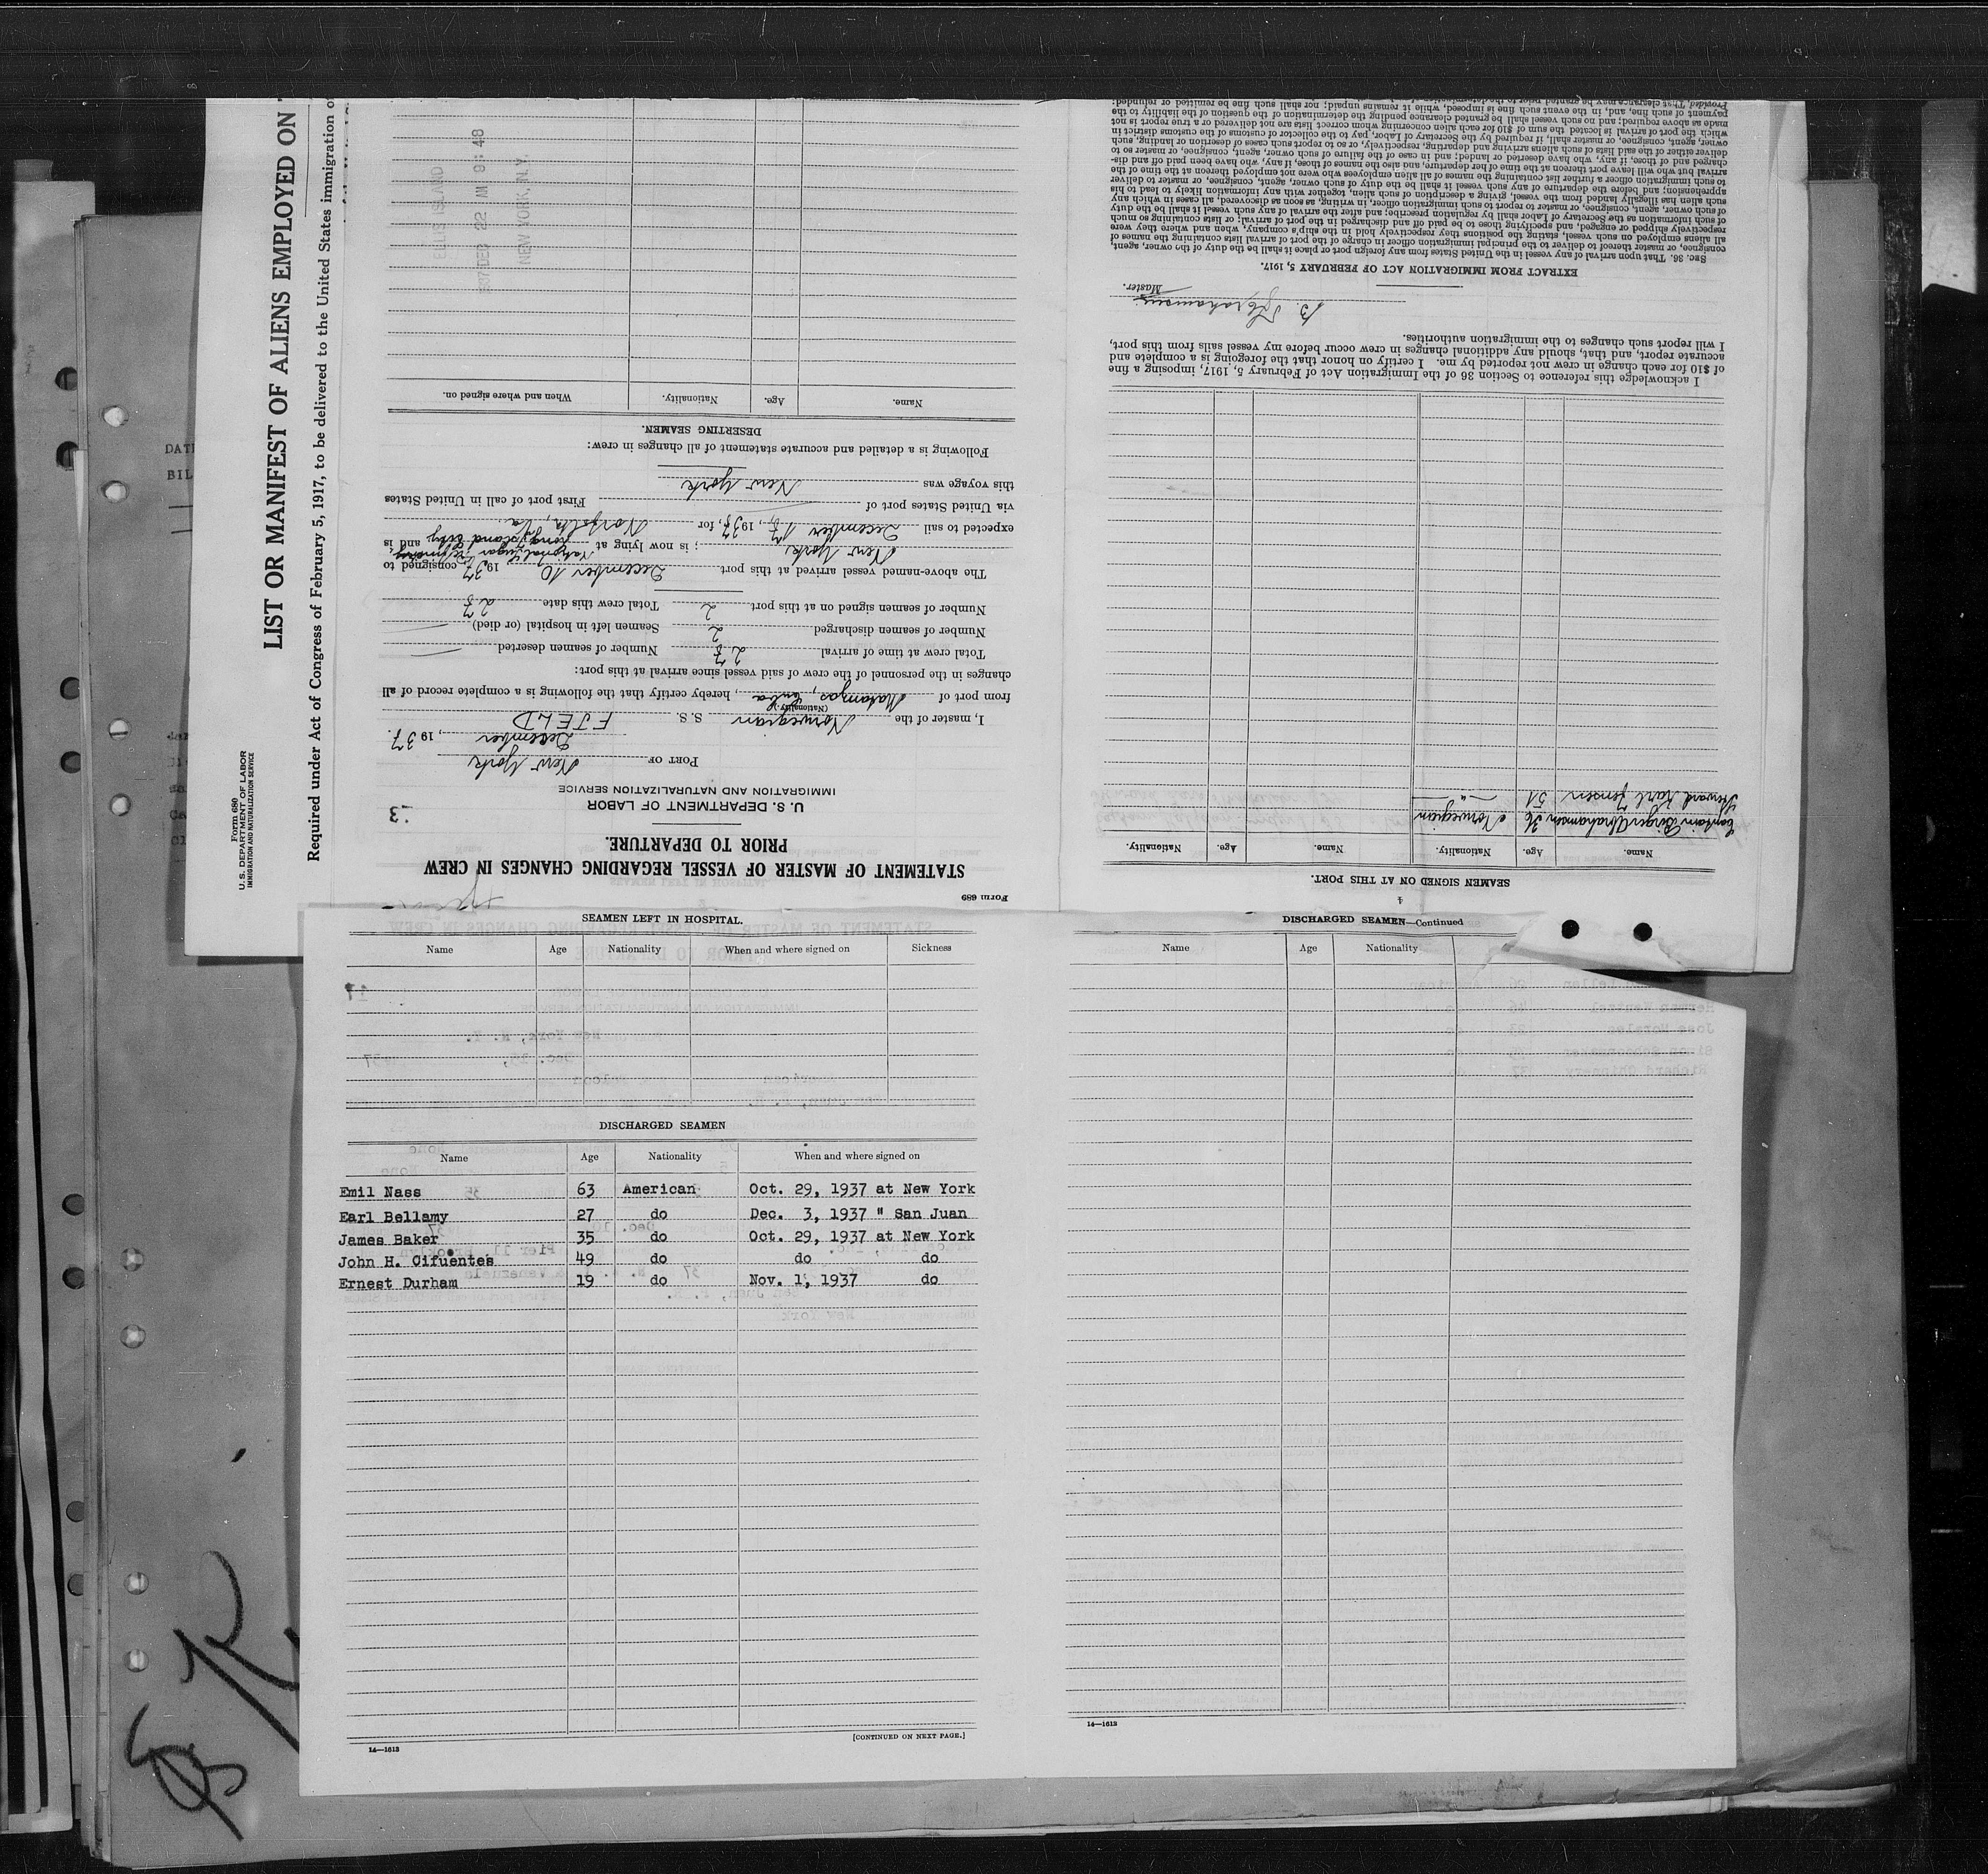 LIST OR MANIFEST OF ALIENS EMPLOYED ON
Required under Act of Congress of February 5, 1917, to be delivered to the United States immigration
Form 680
U. S. DEPARTMENT OF LABOR
IMMIGRATION AND NATURALIZATION SERVICE
Form 689
STATEMENT OF MASTER OF VESSEL REGARDING CHANGES IN CREW
PRIOR TO DEPARTURE.
U. S. DEPARTMENT OF LABOR
IMMIGRATION AND NATURALIZATION SERVICE
13
PORT OF New York
December, 1937.
I, master of the Norwegian S. S. FJELD
(Nationality.)
from port of Matanzas, Cuba, hereby certify that the following is a complete record of all
changes in the personnel of the crew of said vessel since arrival at this port:
Total crew at time of arrival 28 Number of seamen deserted
Number of seamen discharged 2 Seamen left in hospital (or died)
Number of seamen signed on at this port 2 Total crew this date 28
The above-named vessel arrived at this port December 10 1937, consigned to
National Sugar Refinery
New York; is now lying at Long Island City and is
expected to sail December 18, 1937, for Norfolk, Va.
via United States port of First port of call in United States
this voyage was New York
Following is a detailed and accurate statement of all changes in crew:
DESERTING SEAMEN.
Name. Age. Nationality. When and where signed on.
ELLIS ISLAND
1937 DEC 22 AM 9:48
NEW YORK, N.Y.
4
SEAMEN SIGNED ON AT THIS PORT.
Name. Age. Nationality. Name. Age. Nationality.
Captain Birger Abrahamsen 36 Norwegian
Steward Karl Jensen 51 — " —
I acknowledge this reference to Section 36 of the Immigration Act of February 5, 1917, imposing a fine
of $10 for each change in crew not reported by me. I certify on honor that the foregoing is a complete and
accurate report, and that, should any additional changes in crew occur before my vessel sails from this port,
I will report such changes to the immigration authorities.
B. Abrahamsen
Master.
EXTRACT FROM IMMIGRATION ACT OF FEBRUARY 5, 1917.
SEC. 36. That upon arrival of any vessel in the United States from any foreign port or place it shall be the duty of the owner, agent,
consignee, or master thereof to deliver to the principal immigration officer in charge of the port of arrival lists containing the names of
all aliens employed on such vessel, stating the positions they respectively hold in the ship's company, when and where they were
respectively shipped or engaged, and specifying those to be paid off and discharged in the port of arrival; or lists containing so much
of such information as the Secretary of Labor shall by regulation prescribe; and after the arrival of any such vessel it shall be the duty
of such owner, agent, consignee, or master to report to such immigration officer, in writing, as soon as discovered, all cases in which any
such alien has illegally landed from the vessel, giving a description of such alien, together with any information likely to lead to his
apprehension; and before the departure of any such vessel it shall be the duty of such owner, agent, consignee, or master to deliver
to such immigration officer a further list containing the names of all alien employees who were not employed thereon at the time of the
arrival but who will leave port thereon at the time of her departure, and also the names of those, if any, who have been paid off and dis-
charged and of those, if any, who have deserted or landed; and in case of the failure of such owner, agent, consignee, or master so to
deliver either of the said lists of such aliens arriving and departing, respectively, or so to report such cases of desertion or landing, such
owner, agent, consignee, or master, shall, if required by the Secretary of Labor, pay to the collector of customs of the customs district in
which the port of arrival is located the sum of $10 for each alien concerning whom correct lists are not delivered or a true report is not
made as above required; and no such vessel shall be granted clearance pending the determination of the question of the liability to the
payment of such fine, and, in the event such fine is imposed, while it remains unpaid; nor shall such fine be remitted or refunded:
SEAMEN LEFT IN HOSPITAL.
Name Age Nationality When and where signed on Sickness
DISCHARGED SEAMEN
Name Age Nationality When and where signed on
Emil Nass 63 American Oct. 29, 1937 at New York
Earl Bellamy 27 do Dec. 3, 1937 " San Juan
James Baker 35 do Oct. 29, 1937 at New York
John H. Cifuentes 49 do do do
Ernest Durham 19 do Nov. 1, 1937 do
[CONTINUED ON NEXT PAGE.]
14—1613
DISCHARGED SEAMEN—Continued
Name Age Nationality
14—1613